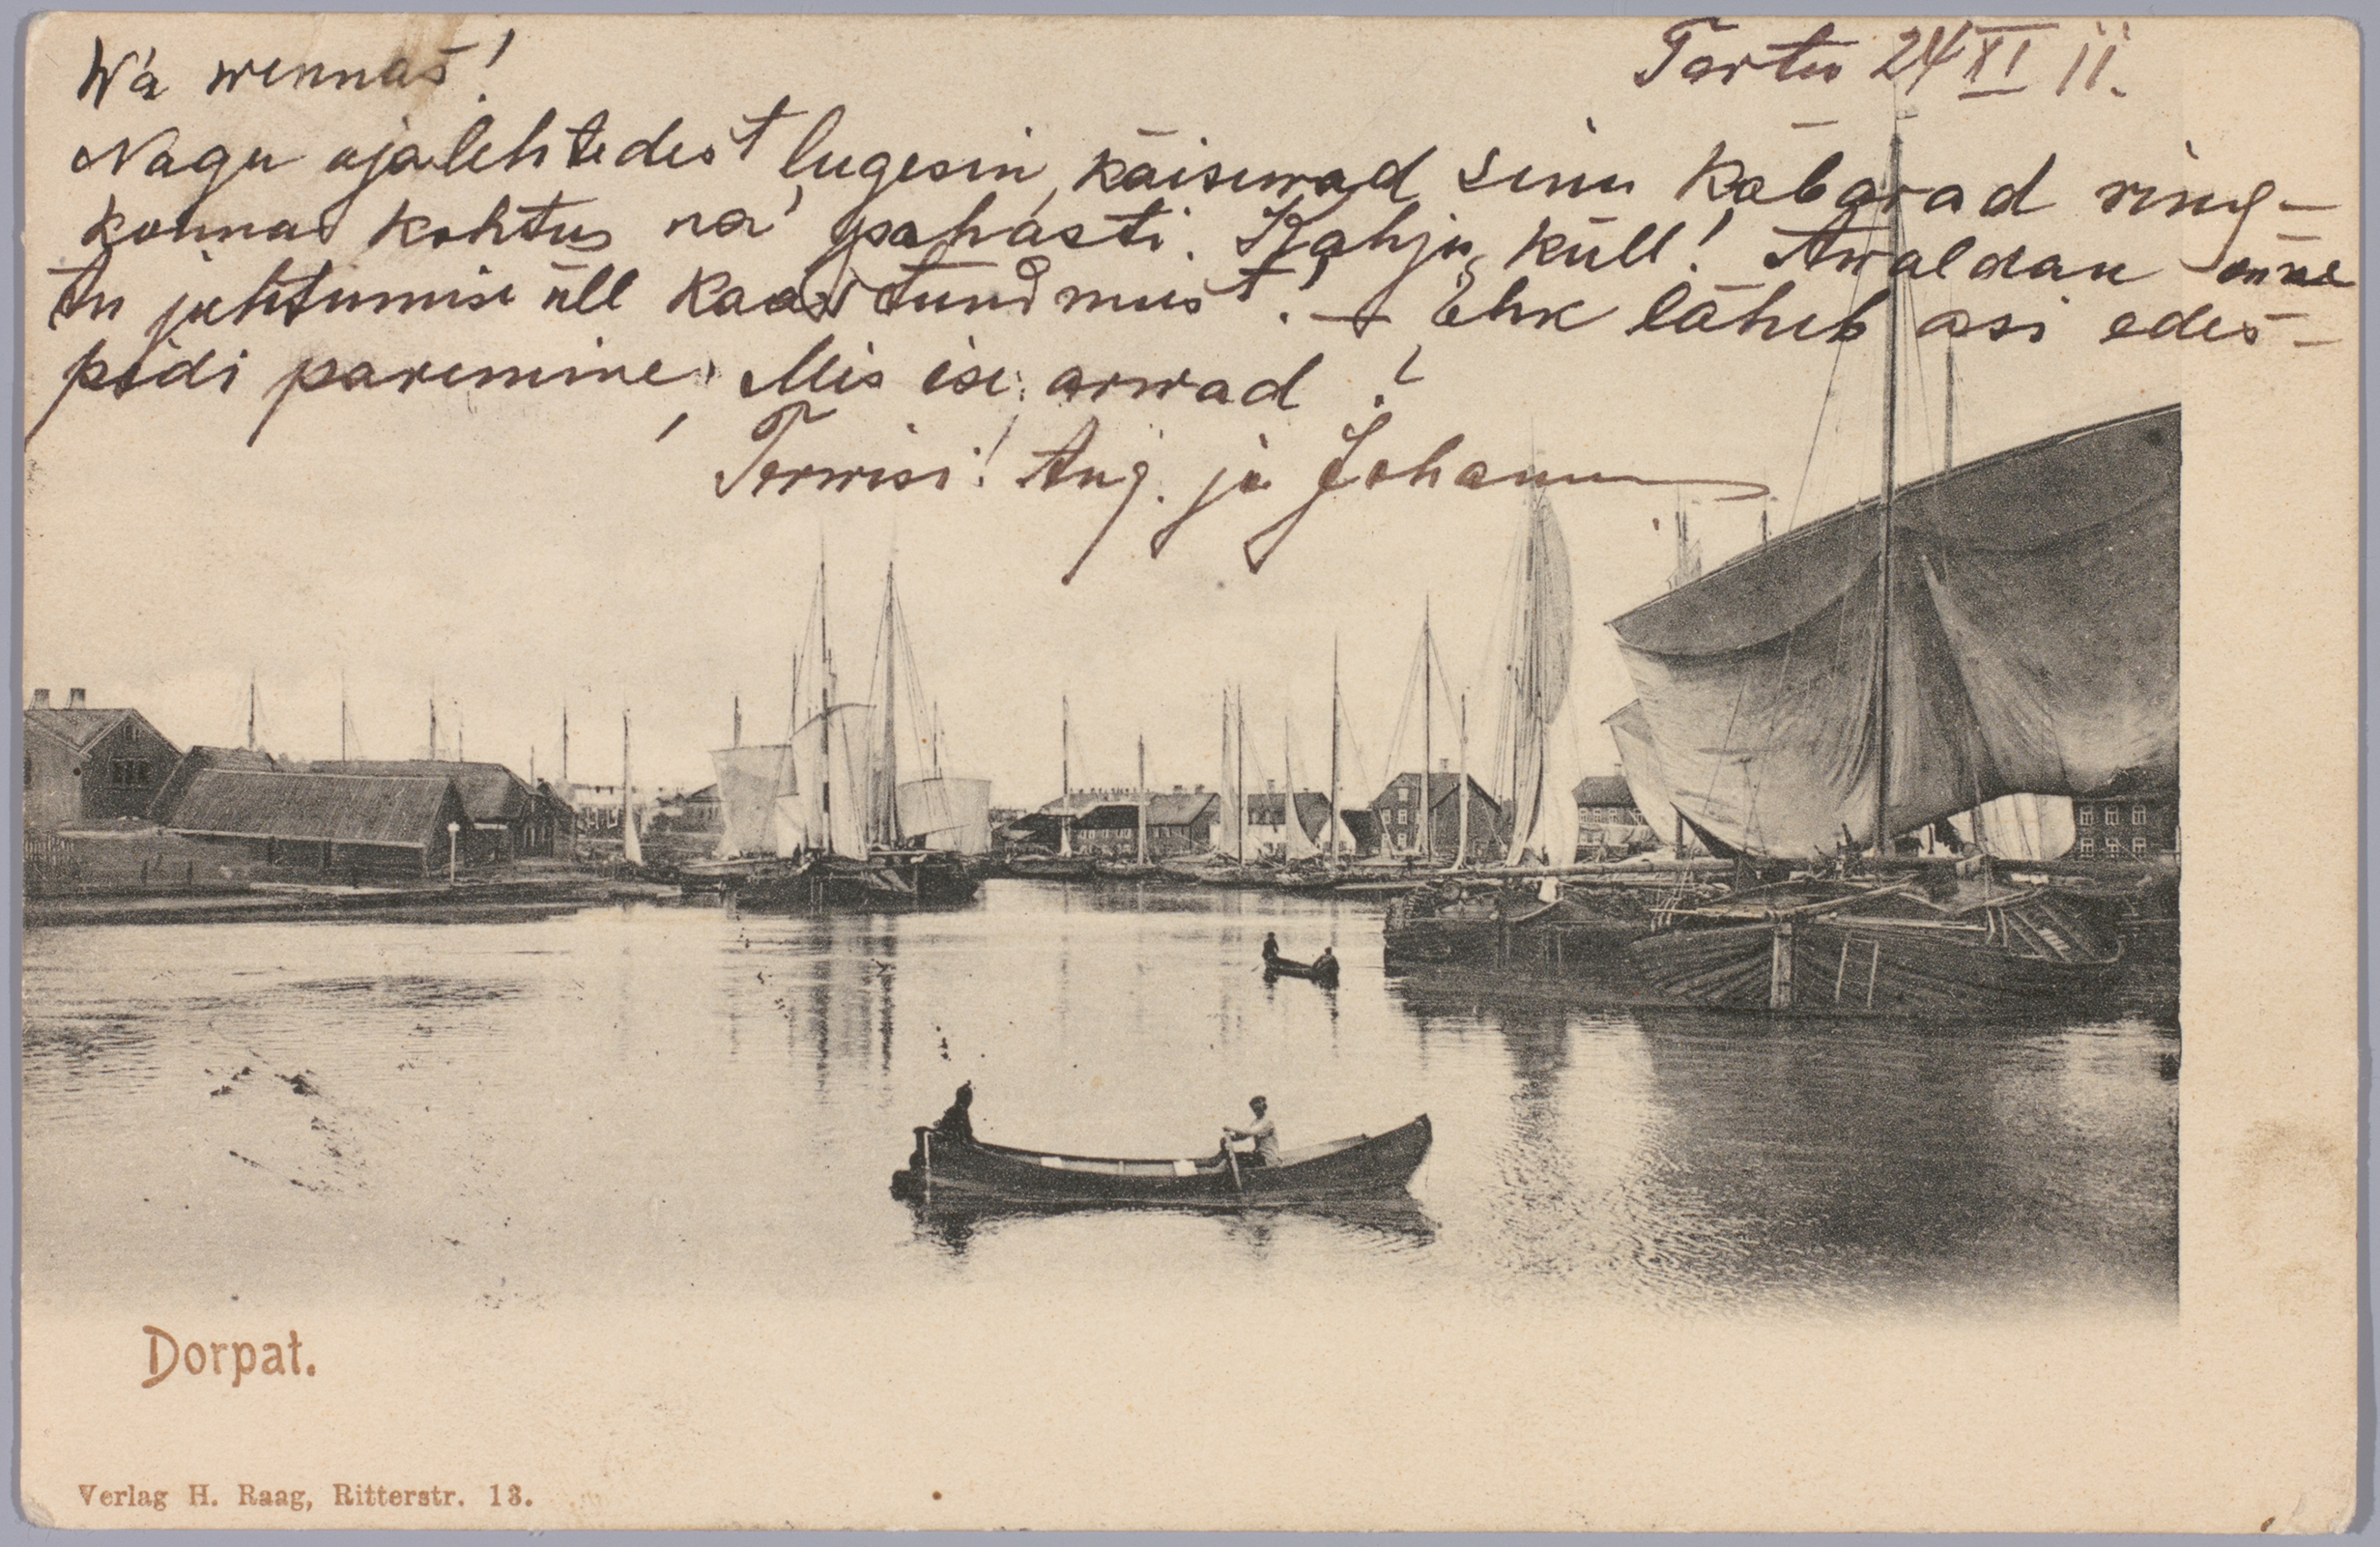 Wa wennas!
Tartu 24 XI 11.
Nagu ajalehtedest lugesin, käisiwad sinu käbarad ring-
konna kohtus na' pahasti. Kahju küll! Awaldan õnne
tu juhtumise üll kaastundmust! — Ehk läheb asi edes-
pidi paremine, Mis ise arwad?
Terwisi! Aug. ja Johann
Dorpat.
Verlag H. Raag, Ritterstr. 13.